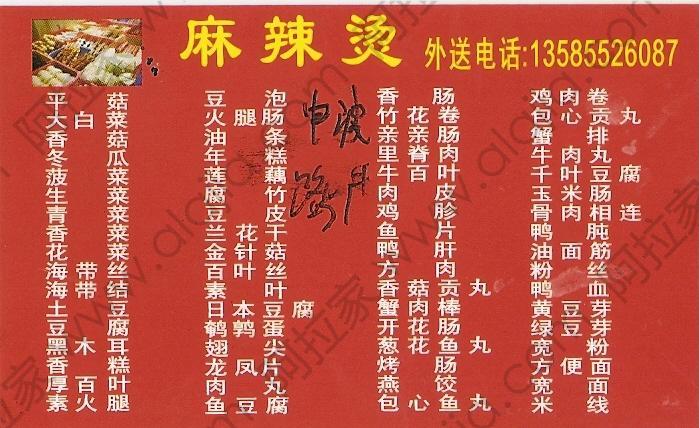 麻辣烫
外送电话:13585552608７
平菇
大白菜
香菇
冬瓜
菠菜
生菜
青菜
香菜
花菜
海带丝
海带结
土豆
豆腐
黑木耳
香糕
厚百叶
素火腿
豆泡
火腿肠
油条
年糕
莲藕
腐竹
豆皮
兰花干
金针菇
百叶丝
素叶
日本豆腐
鹌鹑蛋
翅尖
龙凤片
肉丸
鱼豆腐
波
路
香肠
竹花卷
亲亲肠
里脊肉
牛百叶
肉皮
鸡胗
鱼片
鸭肝
方肉
香菇贡丸
蟹肉棒
开花肠
葱花鱼丸
烤肠
燕饺
包心鱼丸
鸡肉卷
包心贡丸
蟹排
牛肉丸
千叶豆腐
玉米肠
骨肉相连
鸭肫
油面筋
粉丝
鸭血
黄豆芽
绿豆芽
宽粉
方便面
宽面
米线